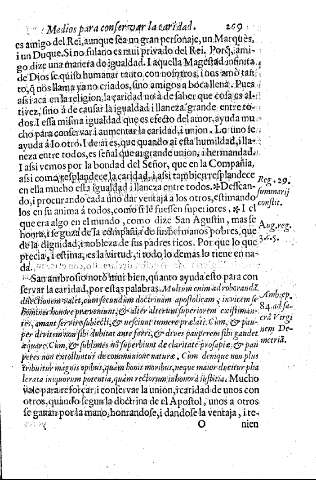 Medios para conservar la caridad. 269
es amigo del Rei, aunque sea un gran personaje, un Marquès,
i un Duque. Si no fulano es mui privado del Rei. Porq̃, ami-
go dize una manera de igualdad. I aquella Magestad infinita
de Dios se quiso humanar tanto con nosotros, i nos amò tan-
to, q̃ nos llama ya no criados, sino amigos a boca llena. Pues
assi aca en la religion, la caridad no à de saber que cosa es al-
tivez, sino à de causar la igualdad i llaneza grande entre to-
dos. I essa misma igualdad que es efecto del amor, ayuda mu-
cho para conservar i aumentar la caridad, i union. Lo uno se
ayuda à lo otro. I de ai es, que quando ai esta humildad, i lla-
neza entre todos, es señal que ai grande union, i hermandad.
I assi vemos por la bondad del Señor, que en la Compañia,
assi como resplandece la caridad, i assi tambien resplandece
en ella mucho esta igualdad i llaneza entre todos. * Dessean-
do, i procurando cada uno dar ventaja a los otros, estimando
los en su anima à todos, como si le fuessen superiores. * I el
que era algo en el mundo, como dize San Agustin, mas se
honra, i se goza de la compañia de sus hermanos pobres, que
de la dignidad, i nobleza de sus padres ricos. Por que lo que
precia, i estima, es la virtud, i todo lo demas lo tiene en na-
da.
Reg. 29.
summarij
constit.
Aug. reg.
3. c. 5.
San ambrosio notò mui bien, quanto ayuda esto para con
servar la caridad, por estas palabras. Multum enim ad roborandã
dilectionem valet, cum secundum doctrinam apostolicam, invicem se
homines honore præveniunt, & alter alterum superiorem existiman-
tes, amant servire subiecti, & nesciunt tumere prælati. Cum, & pau-
per divitem non sibi dubitat ante ferri, & dives pauperem sibi gaudet
æquare. Cum, & sublimes nõ superbiunt de claritate prosapiæ, & pau
peres non extolluntur de communione naturæ. Cum denique non plus
tribuitur magnis opibus, quàm bonis moribus, neque maior ducitur pha
lerata iniquorum potentia, quàm rectorum inhonora iustitia. Mucho
vale para reforçar, i conservar la union, i caridad de unos con
otros, quando segun la doctrina de el Apostol, unos a otros
se ganan por la mano, honrandose, i dandose la ventaja, i te-
Ambr. ep.
84. ad sa-
crã Virgi
nem De-
metriã.
O nien